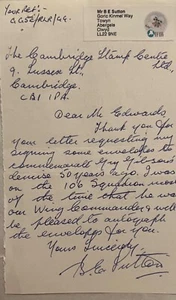 Your Ref:-
CGSE/RLR/GG.
Mr B E Sutton
Gorio Kinmel Way
Towyn
Abergele
Clwyd
LL22 9NE
The Cambridge Stamp Centre
Ltd,
9, Sussex St,
Cambridge.
CB1 1PA.
Dear Mr Edwards
Thank you for
your letter requesting my
signing some envelopes to
commemorate Guy Gibson's
demise 50 years ago. I was
on the 106 Squadron
of the time that he was
our Wing Commander & will
be pleased to autograph
the envelopes for you.
Yours Sincerely.
B E Sutton